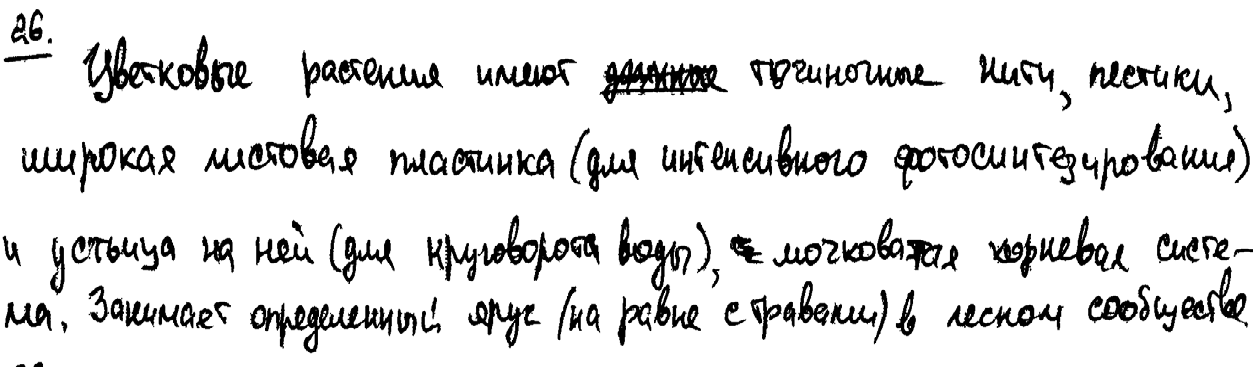 26.
Цветковые растения имеют точиночные нити, пестики,
широкая листовая пластинка (для интенсивного фотосинтезирования)
и устьица на ней (для круговорота воды), мочковатая корневая систе-
ма. Занимает определенный ярус (на равне с травами) в лесном сообществе